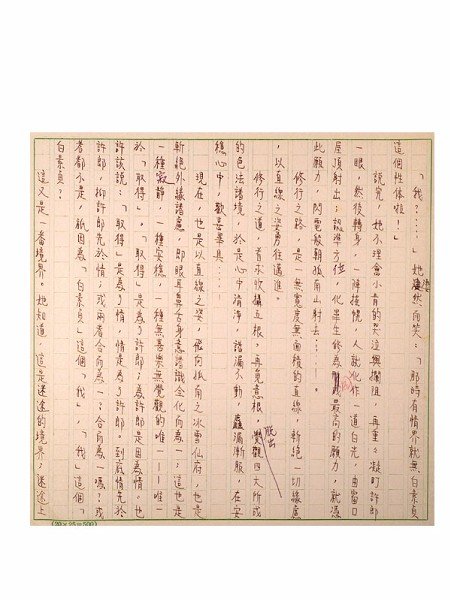 「我?……」她凄然而笑:「那時有情界就無白素貞
這個性體啦!」
說完,她不理會小青的哭泣與攔阻,再重々凝盯許郎
一眼,然後轉身,一陣搖幌,人就化作一道白光,由窗口
屋頂射出;認準方位,化畢生修為 最高的願力,就憑
此願力,閃電般朝孤南山射去……。
修行之路,是一無寬度無面積的直線,斬絕一切緣慮
,以直線之姿勇往邁進。
修行之道,首求收攝五根,再克意根,脫出 觀四大所成
的色法諸境,於是心中清淨,諸漏不動, 漏漸服,在安
穩心中,歡喜暴其……
現在,也是以直線之姿,飛向孤南之冰雪仙府,也是
斬絕外緣諸慮,即眼耳鼻舌身意諸識全化向為一;這也是
一種寂靜,一種安穩,一種無喜樂無覺觀的唯一──唯一
於「取得」。「取得」是為了許郎;為許郎是因為情。也
許該說:「取得」是為了情,情是為了許郎。到底情先於
許郎,抑許郎先於情;或兩者合而為一?合而為一嗎?或
者都不是,祇因為「白素貞」這個「我」,「我」這個「
白素貞?
這又是一番境界。她知道,這是迷途的境界;迷途上
(20×25=500)